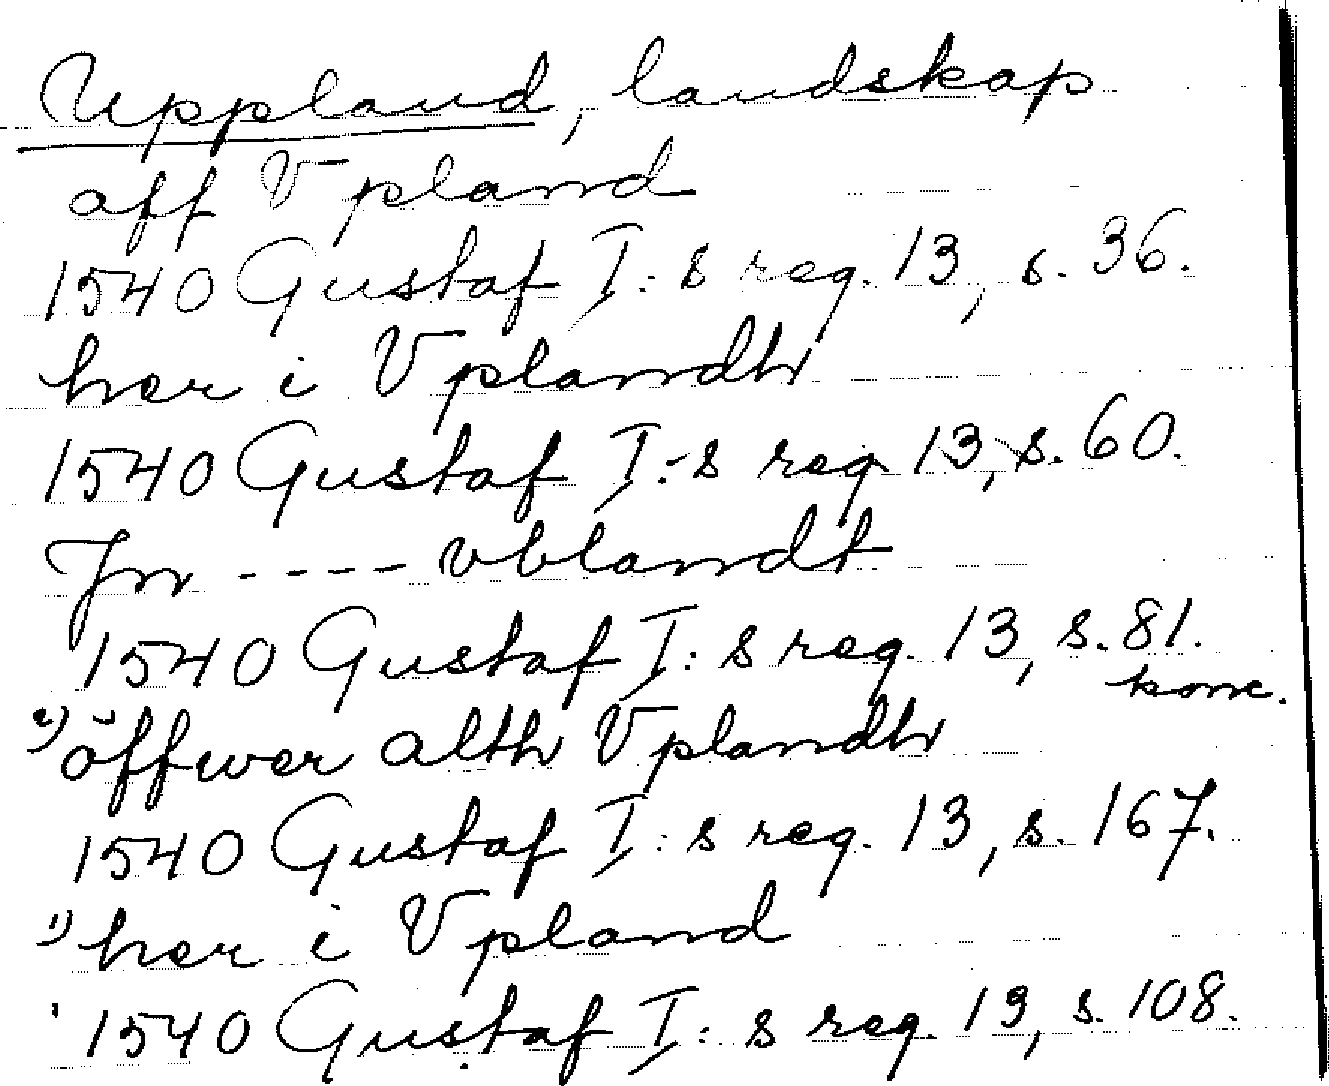 Uppland, landskap
aff Vpland
1540 Gustaf I:s reg. 13, s. 36.
her i Vplandh
1540 Gustaf I:s reg 13, s. 60.
Jn ---- vblandt
1540 Gustaf I:s reg. 13, s. 81.
konc.
2) öffwer alth Vplandh
1540 Gustaf I:s reg. 13, s. 167.
1) her i Vpland
1540 Gustaf I:s reg. 13, s. 108.